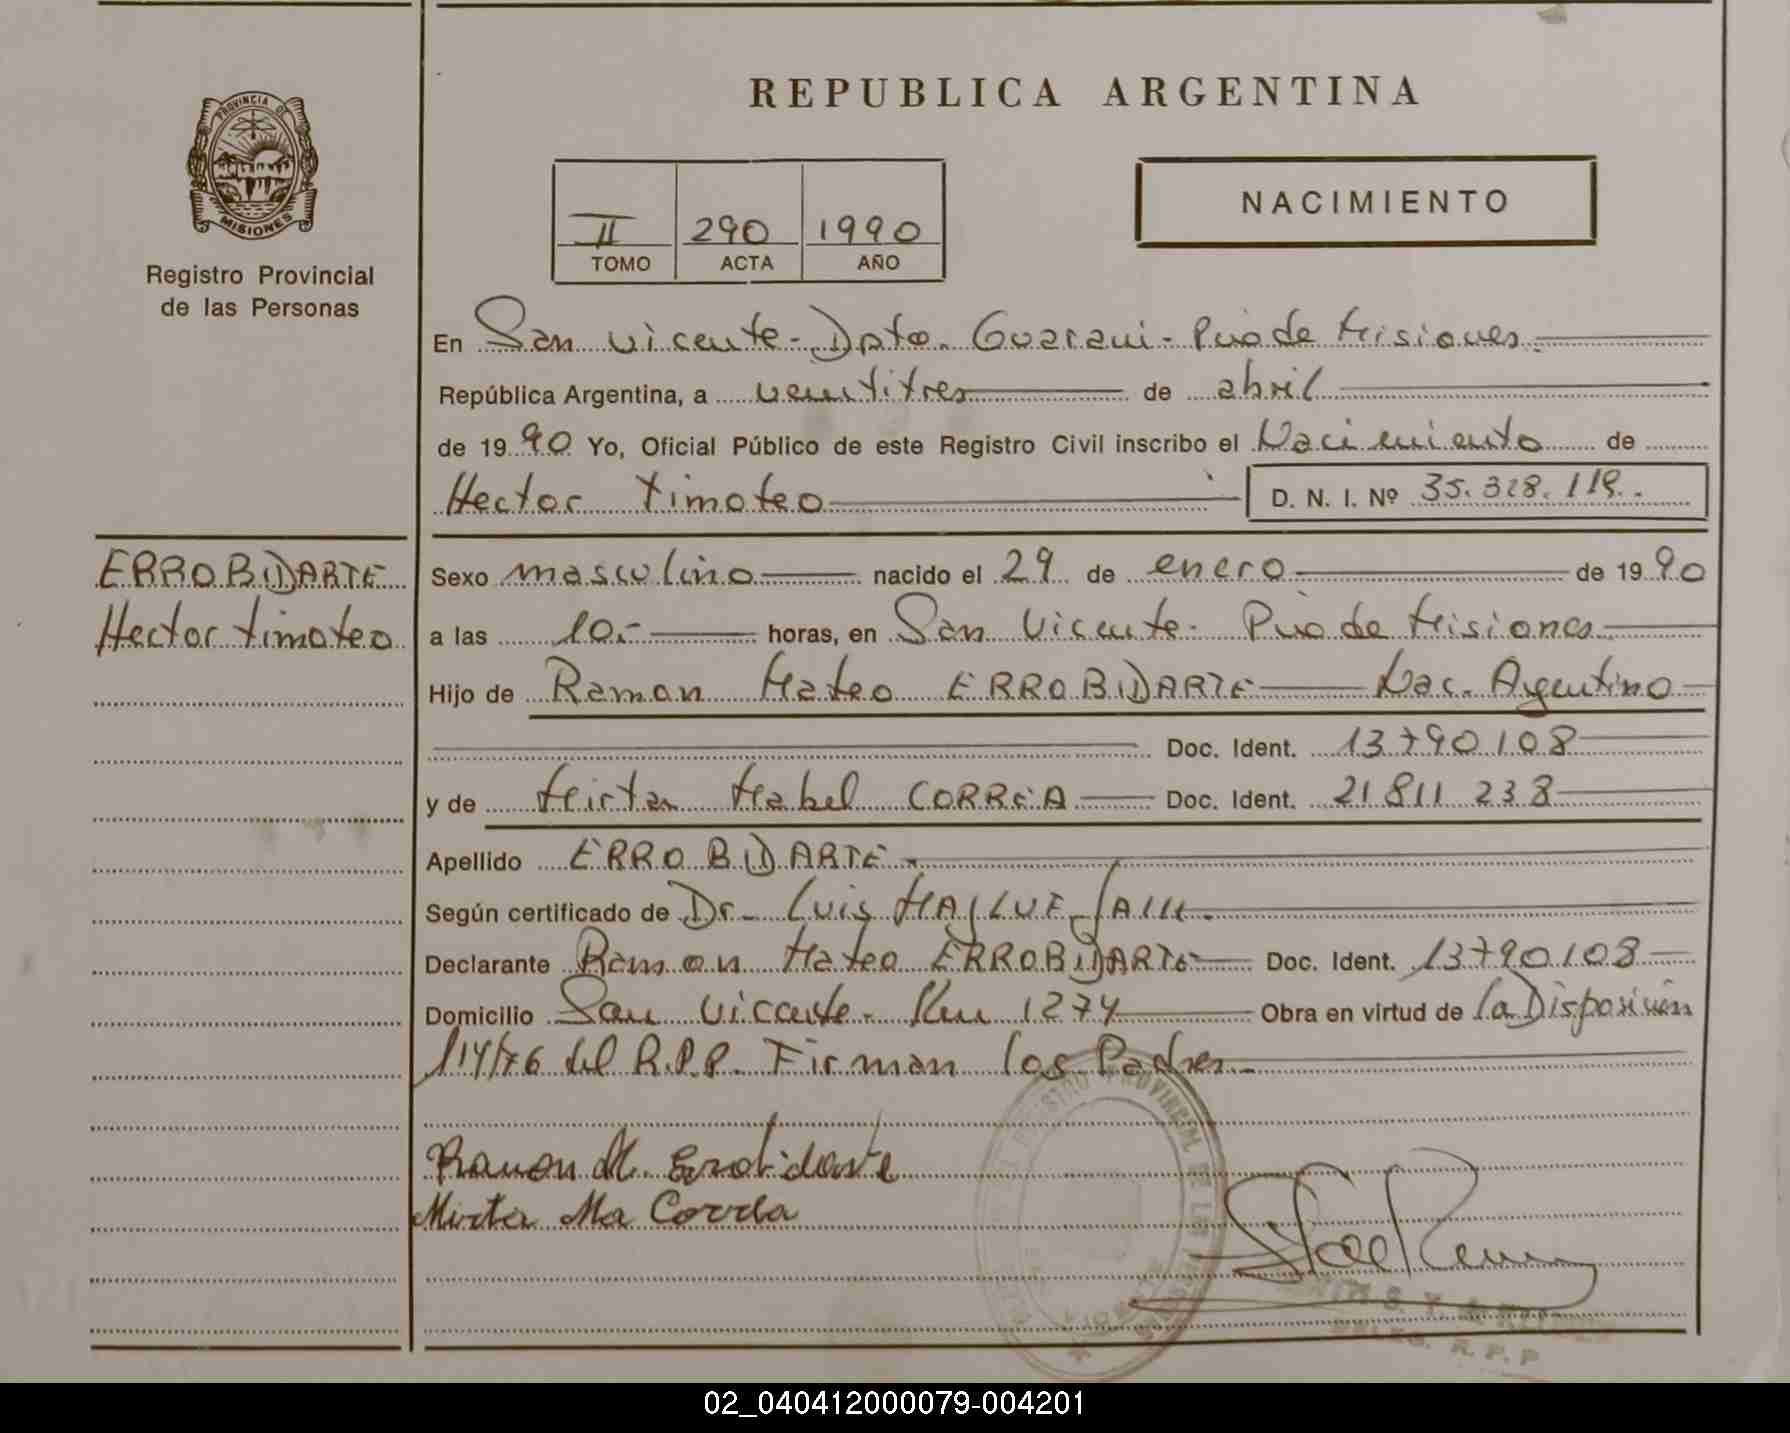 REPUBLICA ARGENTINA
PROVINCIA DE
MISIONES
Registro Provincial
de las Personas
II 290 1990
TOMO ACTA AÑO
NACIMIENTO
En San Vicente - Dpto. Guarani - Pcia de Misiones.
República Argentina, a veintitres de abril
de 1990 Yo, Oficial Público de este Registro Civil inscribo el Nacimiento de
Hector Timoteo D. N. I. Nº 35.328.119.
ERROBIDARTE
Hector Timoteo
Sexo masculino nacido el 29 de enero de 1990
a las 10.- horas, en San Vicente - Pcia de Misiones
Hijo de Ramon Mateo ERROBIDARTE Nac. Argentino
Doc. Ident. 13790108
y de Mirta Mabel CORREA Doc. Ident. 21811238
Apellido ERROBIDARTE.
Según certificado de Dr. Luis
Declarante Ramon Mateo ERROBIDARTE Doc. Ident. 13790108
Domicilio San Vicente - Km 1274 Obra en virtud de la Disposición
114/76 del R.P.P. Firman los Padres.
Ramon M. Errobidarte
Mirta Ma Correa
R. P. P
02_040412000079-004201